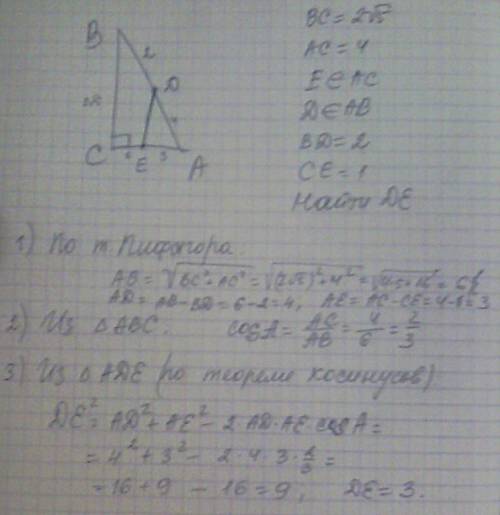 B
2
D
2√5
4
C
1
E
3
A
BC = 2√5
AC = 4
E ∈ AC
D ∈ AB
BD = 2
CE = 1
Найти DE
1) По т. Пифагора.
AB = √BC²+AC² = √(2√5)²+4² = √ = 6
AD = AB - BD = 6 - 2 = 4, AE = AC - CE = 4 - 1 = 3
2) Из △ABC. cosA = AC/AB = 4/6 = 2/3
3) Из △ADE (по теореме косинусов)
DE² = AD² + AE² - 2·AD·AE·cosA =
= 4² + 3² - 2·4·3·2/3 =
= 16 + 9 - 16 = 9, DE = 3.